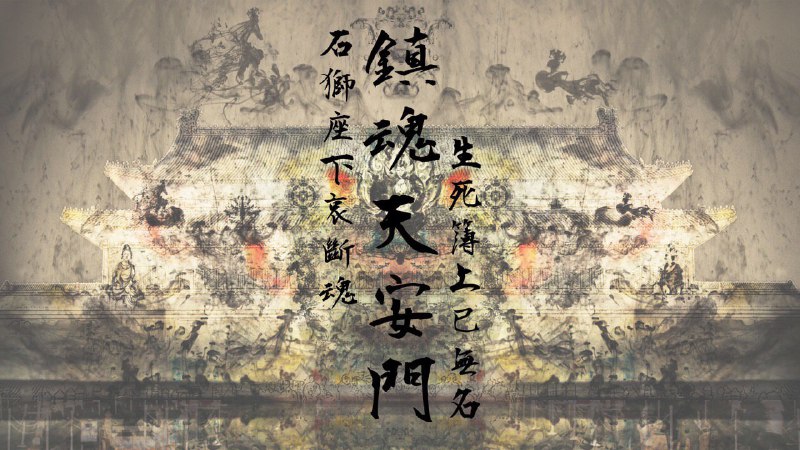 生死簿上已無名
鎮魂天安門
石獅座下哀斷魂